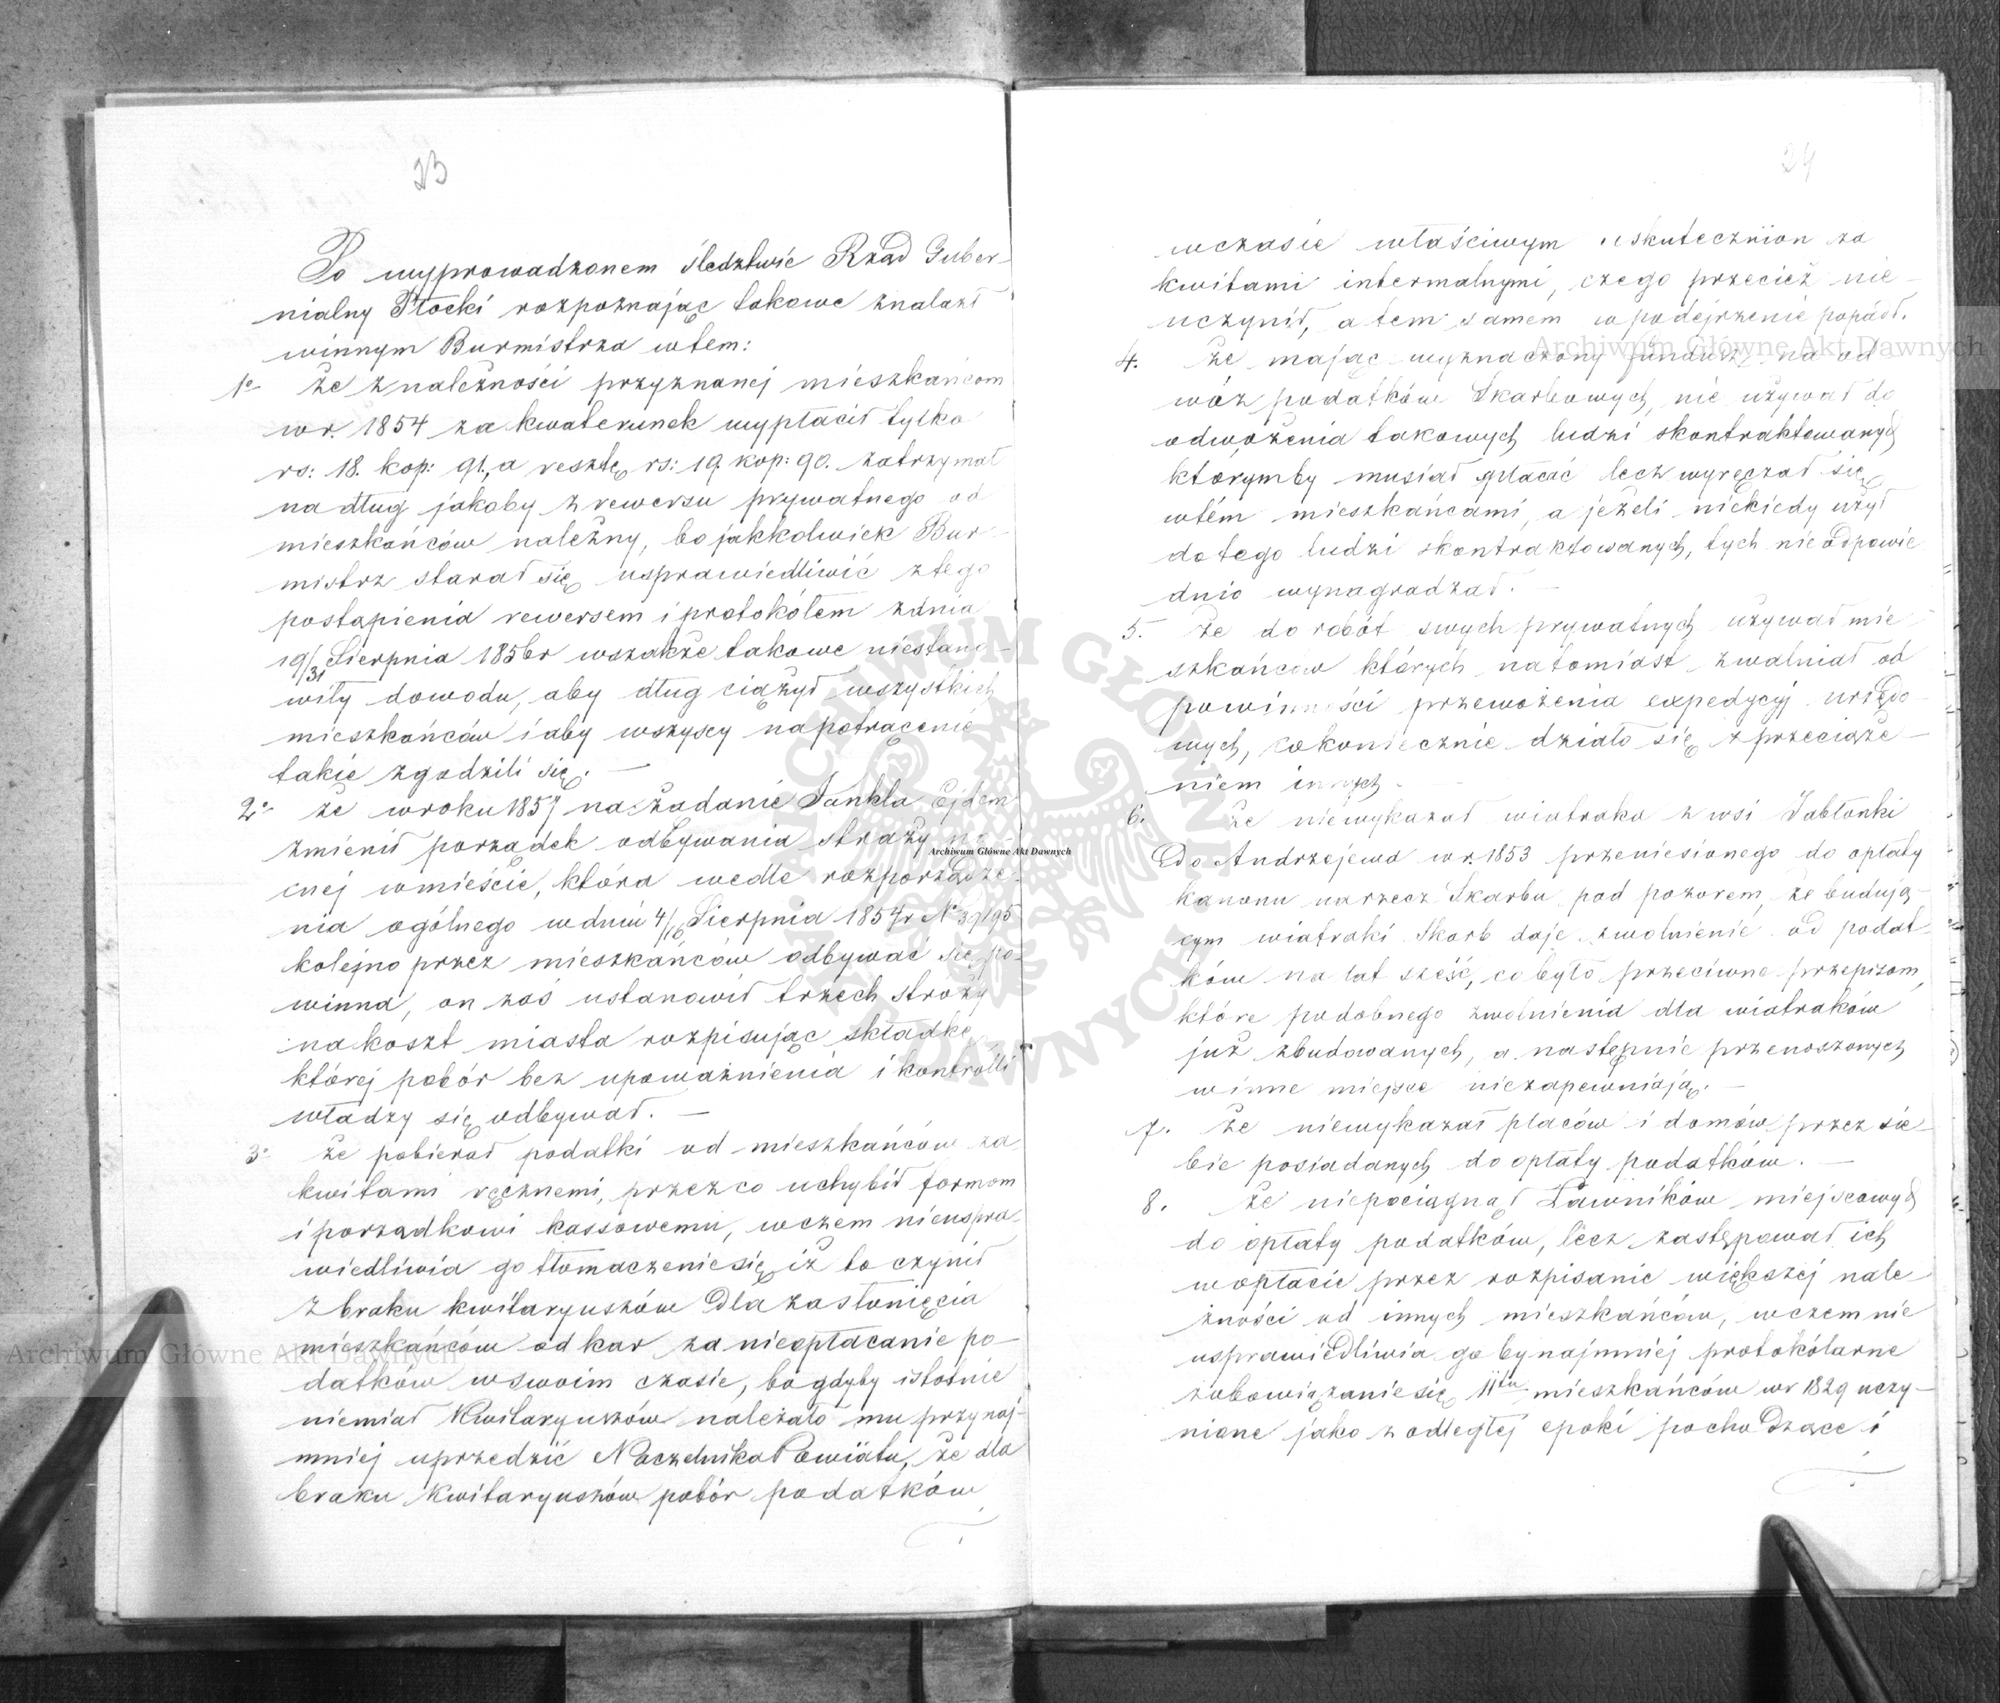 23
Po wyprowadzonem śledztwie Rząd Guber-
nialny Płocki rozpoznając takowe znalazł
winnym Burmistrza w tem:
1o Że z należności przyznanej mieszkańcom
w r. 1854 za kwaterunek wypłacił tylko
rs: 18. kop: 91, a resztę rs: 19. kop: 90. zatrzymał
na dług jakoby z rewersu prywatnego od
mieszkańców należny, bo jakkolwiek Bur-
mistrz starał się usprawiedliwić z tego
postąpienia rewersem i protokółem z dnia
19/31 Sierpnia 1856r wszakże takowe niestano-
wiły dowodu, aby dług ciążył wszystkich
mieszkańców i aby wszyscy na potrącenie
takie zgodzili się. —
2o Że w roku 1857 na żądanie Jankla
zmienił porządek odbywania straży no-
cnej w mieście, która wedle rozporządze-
nia ogólnego w dniu 4/16 Sierpnia 1854r No 39195
kolejno przez mieszkańców odbywać się po-
winna, on zaś ustanowił trzech stróży
na koszt miasta rozpisując składkę
której pobór bez upoważnienia i kontrolli
władzy się odbywał. —
3o Że pobierał podatki od mieszkańców za
kwitami ręcznemi, przez co uchybił formom
i porządkowi kassowemu, w czem nieuspra-
wiedliwia go tłomaczenie się iż to czynił
z braku kwitaryuszów dla zasłonięcia
mieszkańców od kar za nieopłacanie po-
datków w swoim czasie, bo gdyby istotnie
niemiał Kwitaryuszów należało mu przynaj-
mniej uprzedzić Naczelnika Powiatu, że dla
braku Kwitaryuszów pobór podatków
24
w czasie właściwym uskutecznion za
kwitami intermalnymi, czego przecież nie-
uczynił, a tem samem w podejrzenie popadł.
4. Że mając wyznaczony fundusz na od
wóz podatków Skarbowych, nie używał do
odwożenia takowych ludzi skontraktowanych
którymby musiał płacić lecz wyręczał się
w tém mieszkańcami, a jeżeli niekiedy użył
do tego ludzi skontraktowanych, tych nieodpowie
dnio wynagradzał. —
5. Że do robót swych prywatnych używał mie-
szkańców których natomiast zwalniał od
powinności przewożenia expedycyj urzędo-
wych, co koniecznie działo się z przeciąże-
niem innych.
6. Że niewykazał wiatraka z wsi Jabłonki
do Andrzejewa w r. 1853 przeniesionego do opłaty
kanonu na rzecz Skarbu pod pozorem, że budują-
cym wiatraki Skarb daje zwolnienie od podat-
ków na lat sześć, co było przeciwne przepisom,
które podobnego zwolnienia dla wiatraków
już zbudowanych, a następnie przenoszonych
w inne miejsce niezapewniają. —
7. Że niewykazał placów i domów przez sie-
bie posiadanych do opłaty podatków. —
8. Że niepociągnął Ławników miejscowych
do opłaty podatków, lecz zastępował ich
w opłacie przez rozpisanie większej nale
żności od innych mieszkańców, w czem nie
usprawiedliwia go bynajmniej protokólarne
zobowiązanie się 11tu mieszkańców w r 1829 uczy-
nione jako z odległej epoki pochodzące i
Archiwum Główne Akt Dawnych
Archiwum Główne Akt Dawnych
Archiwum Główne Akt Dawnych
ARCHIWUM GŁÓWNE AKT DAWNYCH